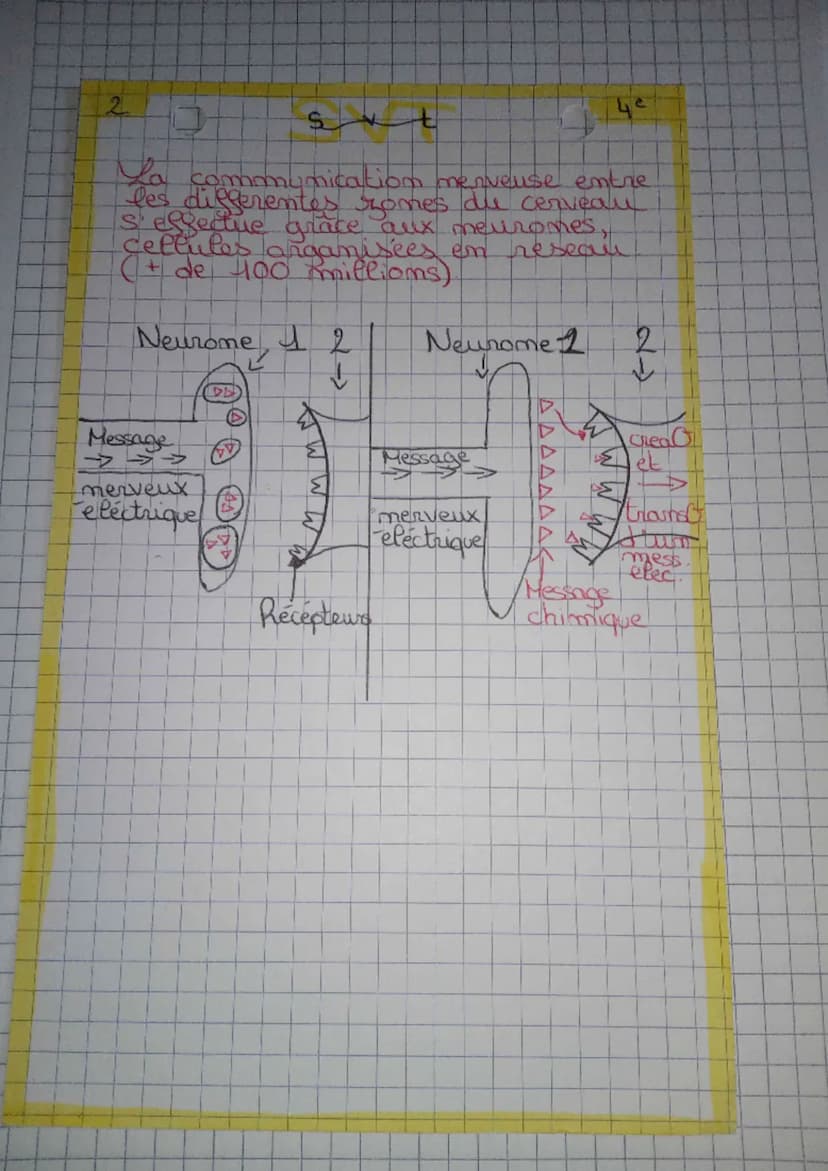 2
SVT
svt
4e
La communication nerveuse entre
les differentes zones du cerveau
s'effectue grâce aux neurones,
cellules organisées en réseau
(+ de 100 millions)
Neurone 1 2
Message
nerveux
électrique
Récépteurs
Neurone 1 2
Message
nerveux
électrique
Message
chimique
crea°
et
trans°
d'un
mess.
elec.